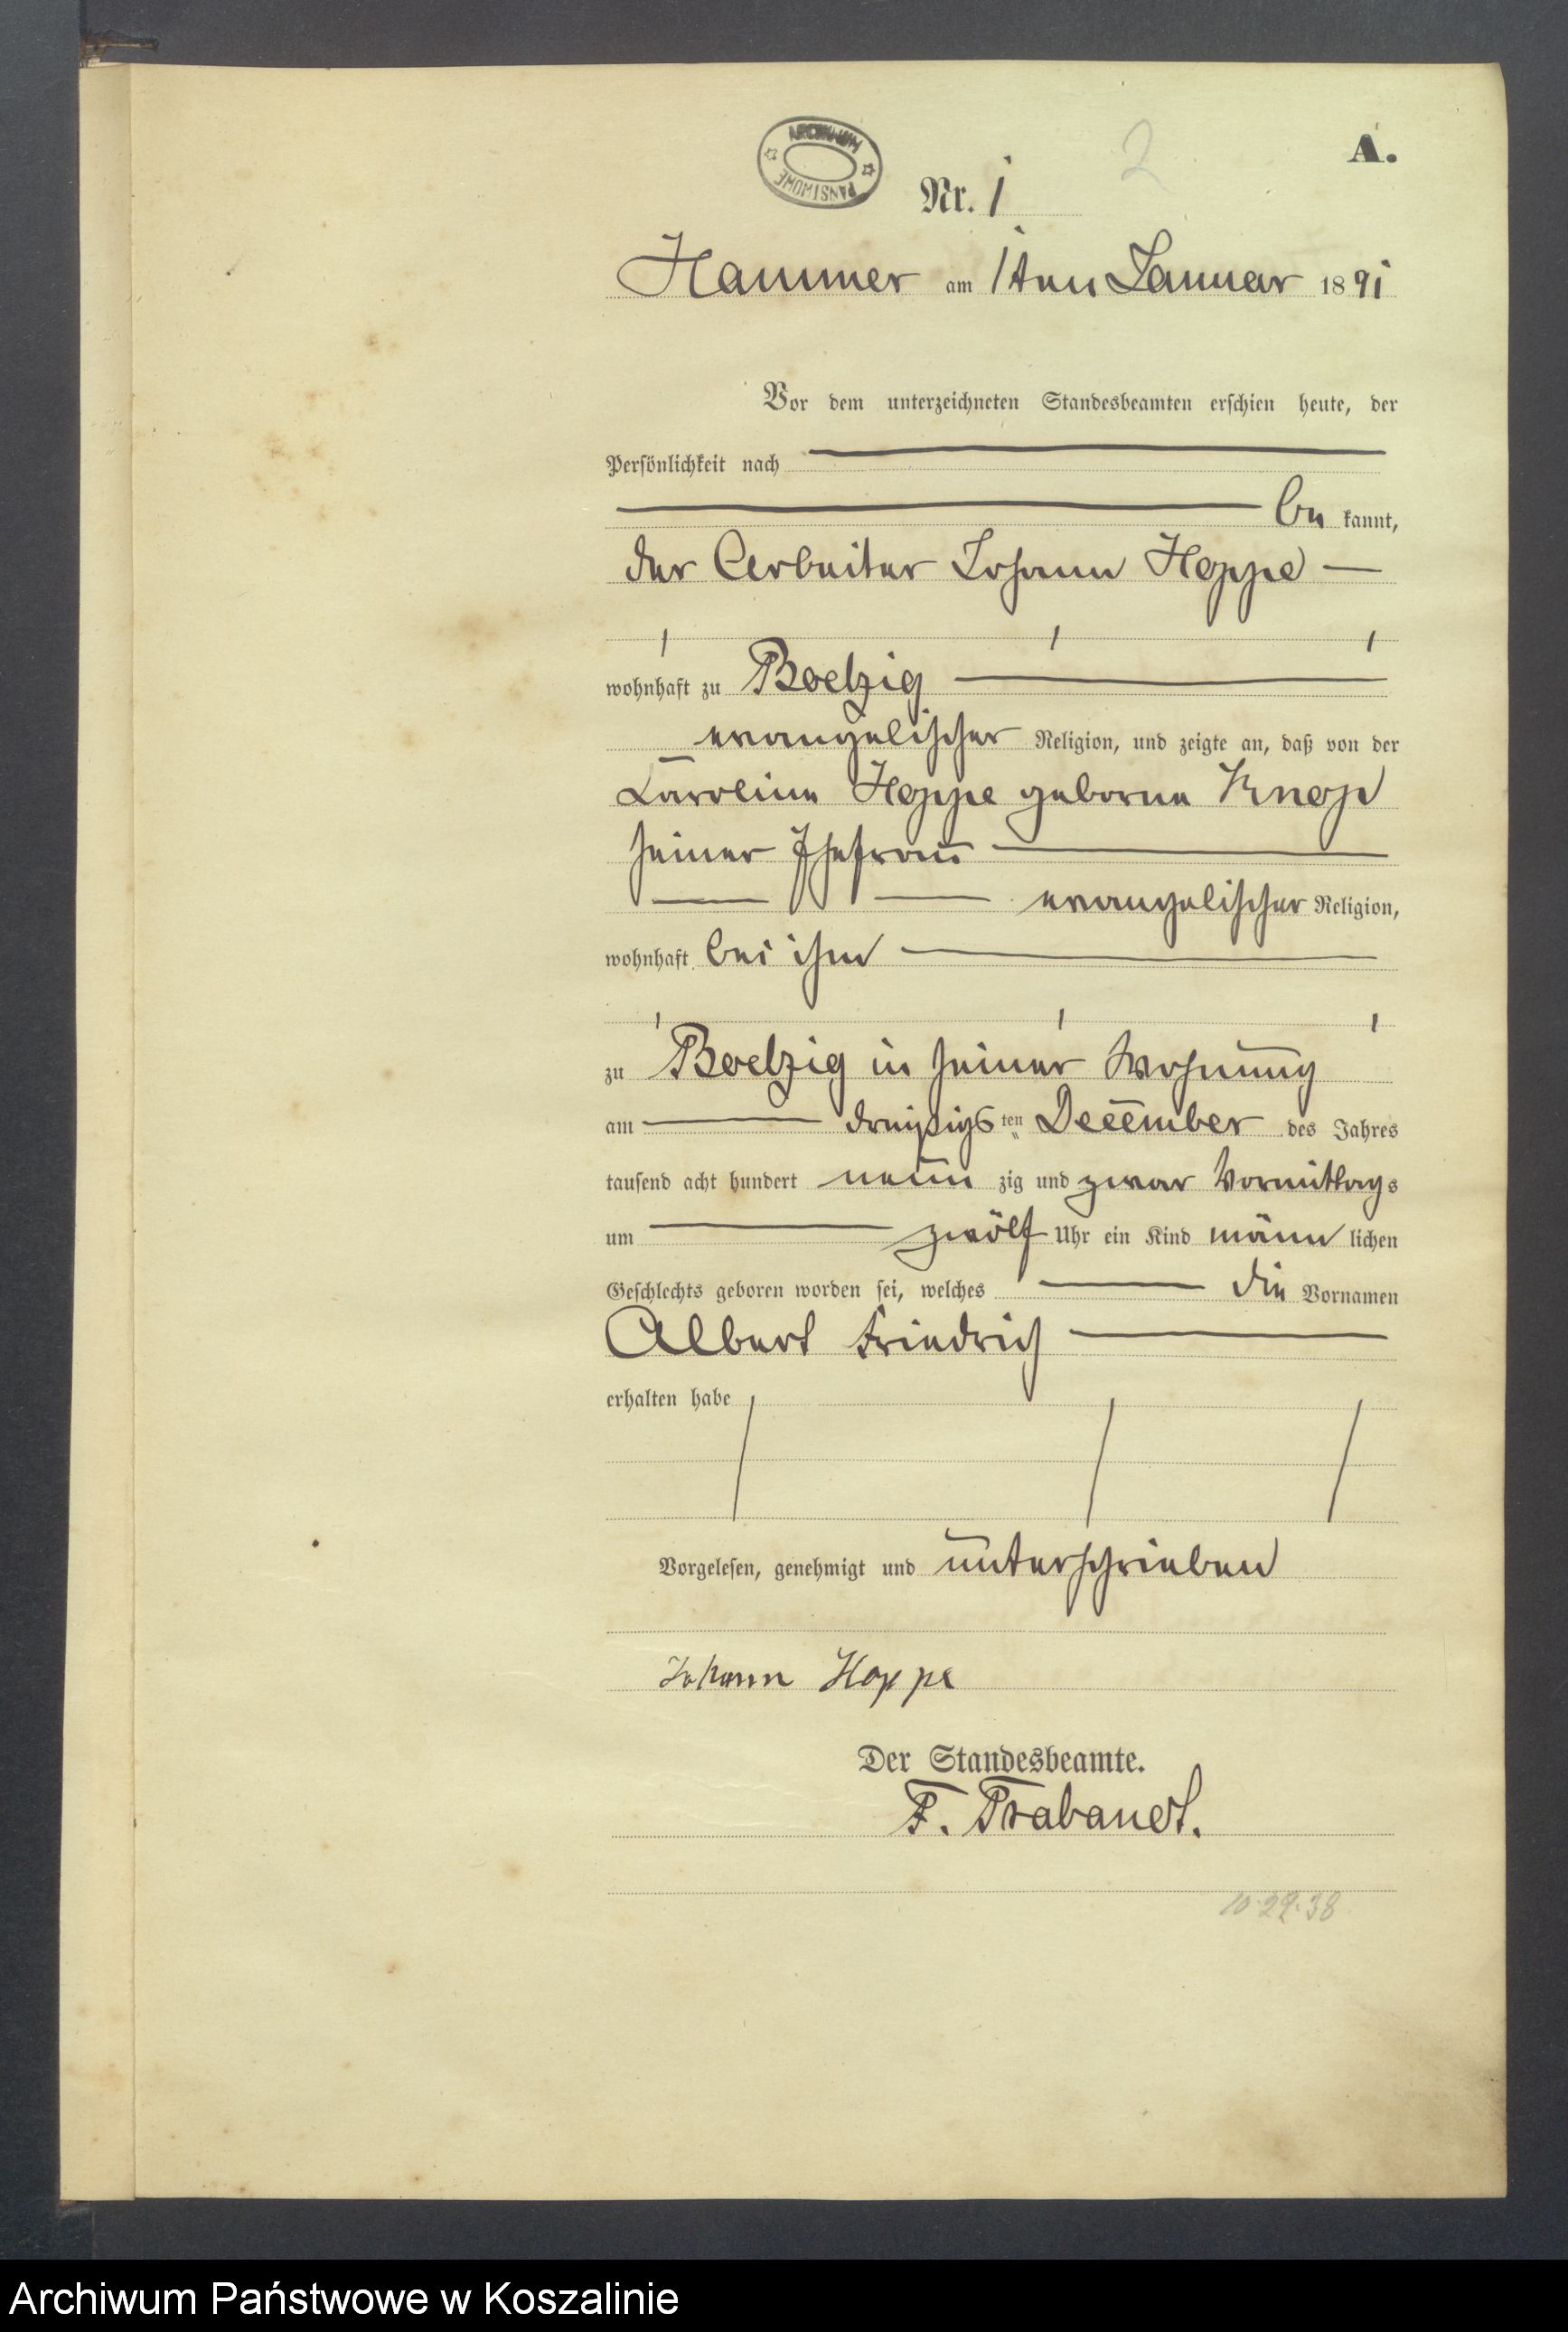 ARCHIWUM PAŃSTWOWE
2
A.
Nr. 1
Hammer am 1ten Januar 1891
Vor dem unterzeichneten Standesbeamten erschien heute, der
Persönlichkeit nach
be kannt,
der Arbeiter Johann Hoppe
wohnhaft zu Boelzig
evangelischer Religion, und zeigte an, daß von der
Karoline Hoppe geborne Knop
seiner Ehefrau
evangelischer Religion,
wohnhaft bei ihm
zu Boelzig in seiner Wohnung
am dreißigsten December des Jahres
tausend acht hundert neun zig und zwar Vormittags
um zwölf Uhr ein Kind männ lichen
Geschlechts geboren worden sei, welches die Vornamen
Albert Friedrich
erhalten habe
Vorgelesen, genehmigt und unterschrieben
Johann Hoppe
Der Standesbeamte.
F. Trabandt.
10.29.38
Archiwum Państwowe w Koszalinie